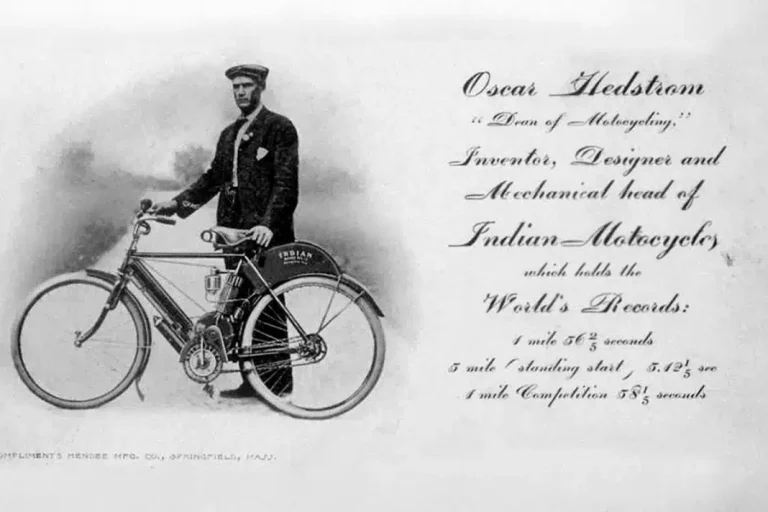 Oscar Hedstrom
"Dean of Motocycling,"
Inventor, Designer and
Mechanical head of
Indian Motocycles
which holds the
World's Records:
1 mile 56 2/5 seconds
5 mile (standing start) 5.42 1/5 sec
1 mile Competition 58 1/5 seconds
INDIAN
OMPLIMENTS HENDEE MFG. CO., SPRINGFIELD, MASS.